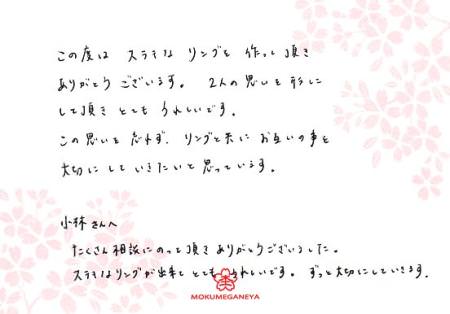 この度は ステキな リングを 作って頂き
ありがとう ございます。 2人の思いを形に
して頂き とても うれしいです。
この思いを 忘れず、リングと共に お互いの事を
大切に していきたいと思っています。
小林さんへ
たくさん相談にのって頂き ありがとうございました。
ステキなリングが出来て とても うれしいです。 ずっと大切にしていきます。
MOKUMEGANEYA